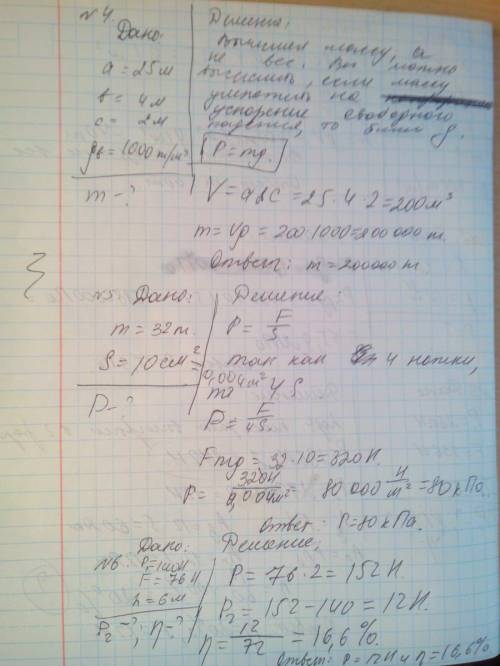 №4.
Дано:
a = 25 м
в = 4 м
c = 2 м
ρв = 1000 т/м³
m – ?
Решения:
Вычислим массу, а
не вес. Вес можно
вычислить, если массу
умножить на
ускорение свободного
падения, то бишь g.
P = mg.
V = abc = 25 · 4 · 2 = 200 м³
m = Vρ = 200 · 1000 = 200 000 т.
Ответ: m = 200000 т.
Дано:
m = 32 т.
S = 10 см²
P – ?
Решение:
P = F/S
так как 4 ножки,
0,004 м²
то 4S
P = F/4S.
Fmg = 32 · 10 = 320 Н.
P = 320Н/0,004м² = 80 000 Н/м² = 80 кПа.
Ответ: P = 80 кПа.
№6.
Дано:
P₁ = 140Н
F = 76 Н
h = 6 м
P₂ – ?; η – ?
Решение:
P = 76 · 2 = 152 Н.
P₂ = 152 – 140 = 12Н.
η = 12/72 = 16,6 %.
Ответ: P = 12Н и η = 16,6 %